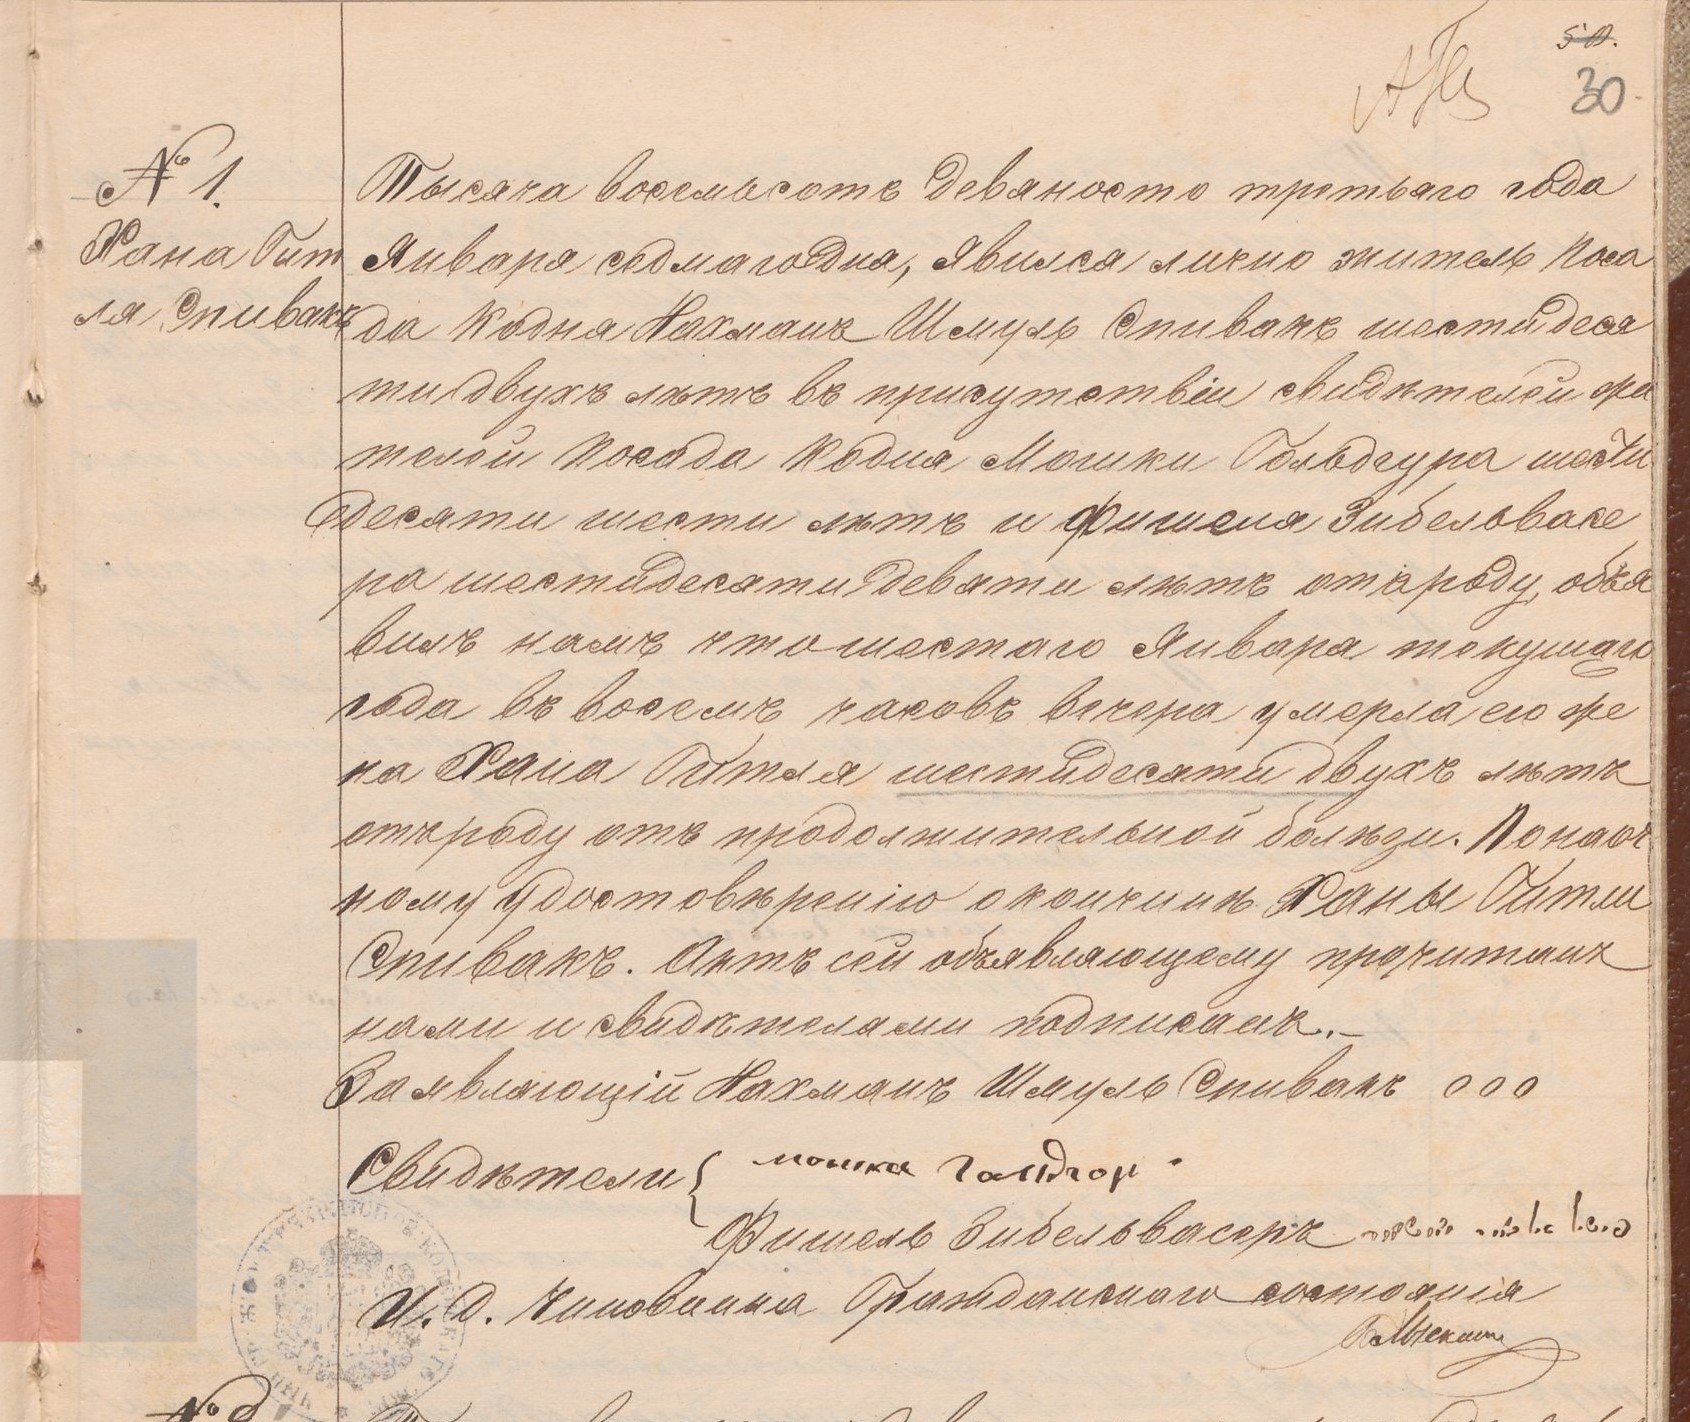 50.
30
№ 1.
Хана Гит
ля Спивакъ
Тысяча восемьсотъ девяносто третьяго года
Января седмаго дня, явился лично житель Поса
да Кодня Нахманъ Шмуль Спивакъ шестидеся
ти двухъ лѣтъ въ присутствіи свидѣтелей жи
телей Посада Кодня Мошки Гольдгура шести
десяти шести лѣтъ и Фишеля Зибельвасе
ра шестидесяти девяти лѣтъ отъ роду, объя
вилъ намъ что шестаго Января текущаго
года въ восемъ часовъ вечера умерла его же
на Хана Гитля шестидесяти двухъ лѣтъ
отъ роду отъ продолжительной болѣзи. По наоч
ному удостовѣренію окончинѣ Ханы Гитли
Спивакъ. Актъ сей объявляющему прочитанъ
нами и свидѣтелями подписанъ.–
Заявляющій Нахманъ Шмуль Спивакъ ООО
Свидѣтели { мошка Голдгор
Фишель Зибельвасеръ
И. Д. Чиновника Гражданскаго состоянія
№ 2